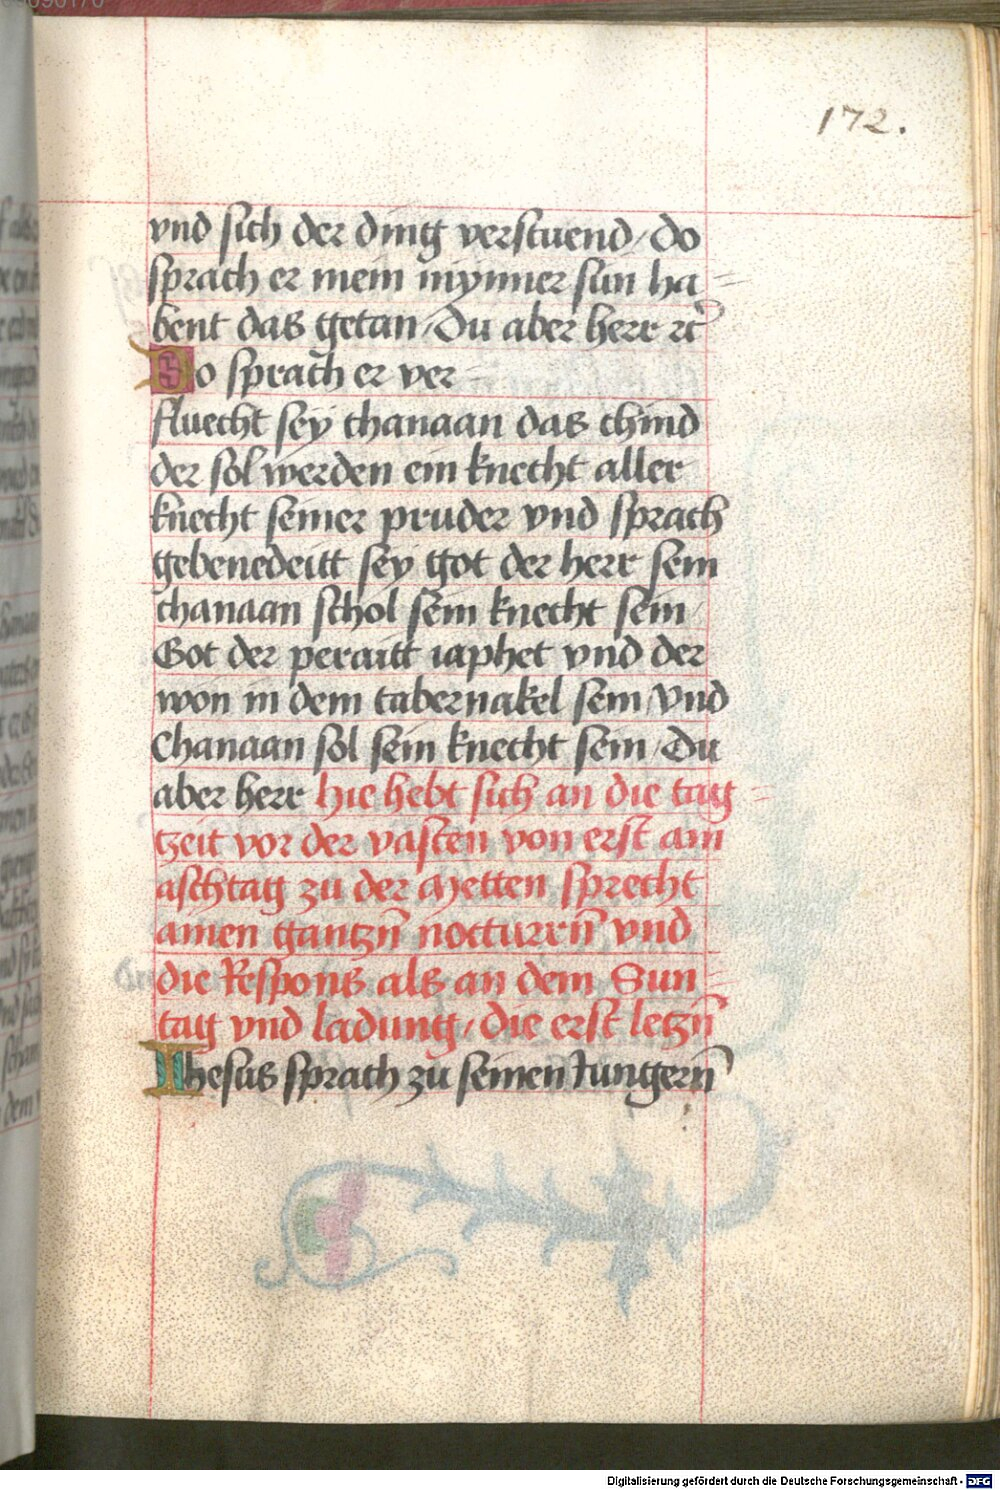 172.
vnd sich der ding verstuend / Do
sprach er mein mynner sun ha=
bent das getan / Du aber herr rc̄
Do sprach er ver
fluecht sey chanaan das chind
der sol werden ein knecht aller
knecht seiner pruder vnd sprach
gebenedeitt sey got der herr sem
chanaan schol sein knecht sein /
Got der peraitt iaphet vnd der
won in dem tabernakel sem / vnd
Chanaan sol sein knecht sein / Du
aber herr Hie hebt sich an die tag=
tzeit vor der vasten von erst am
aschtag zu der Metten sprecht
ainen gantzn̄ nocturrn̄ vnd
die Respons als an dem Sun=
tag vnd ladung / Die erst letzn̄
Ihesus sprach zu seinen Iungern̄
Digitalisierung gefördert durch die Deutsche Forschungsgemeinschaft - DFG